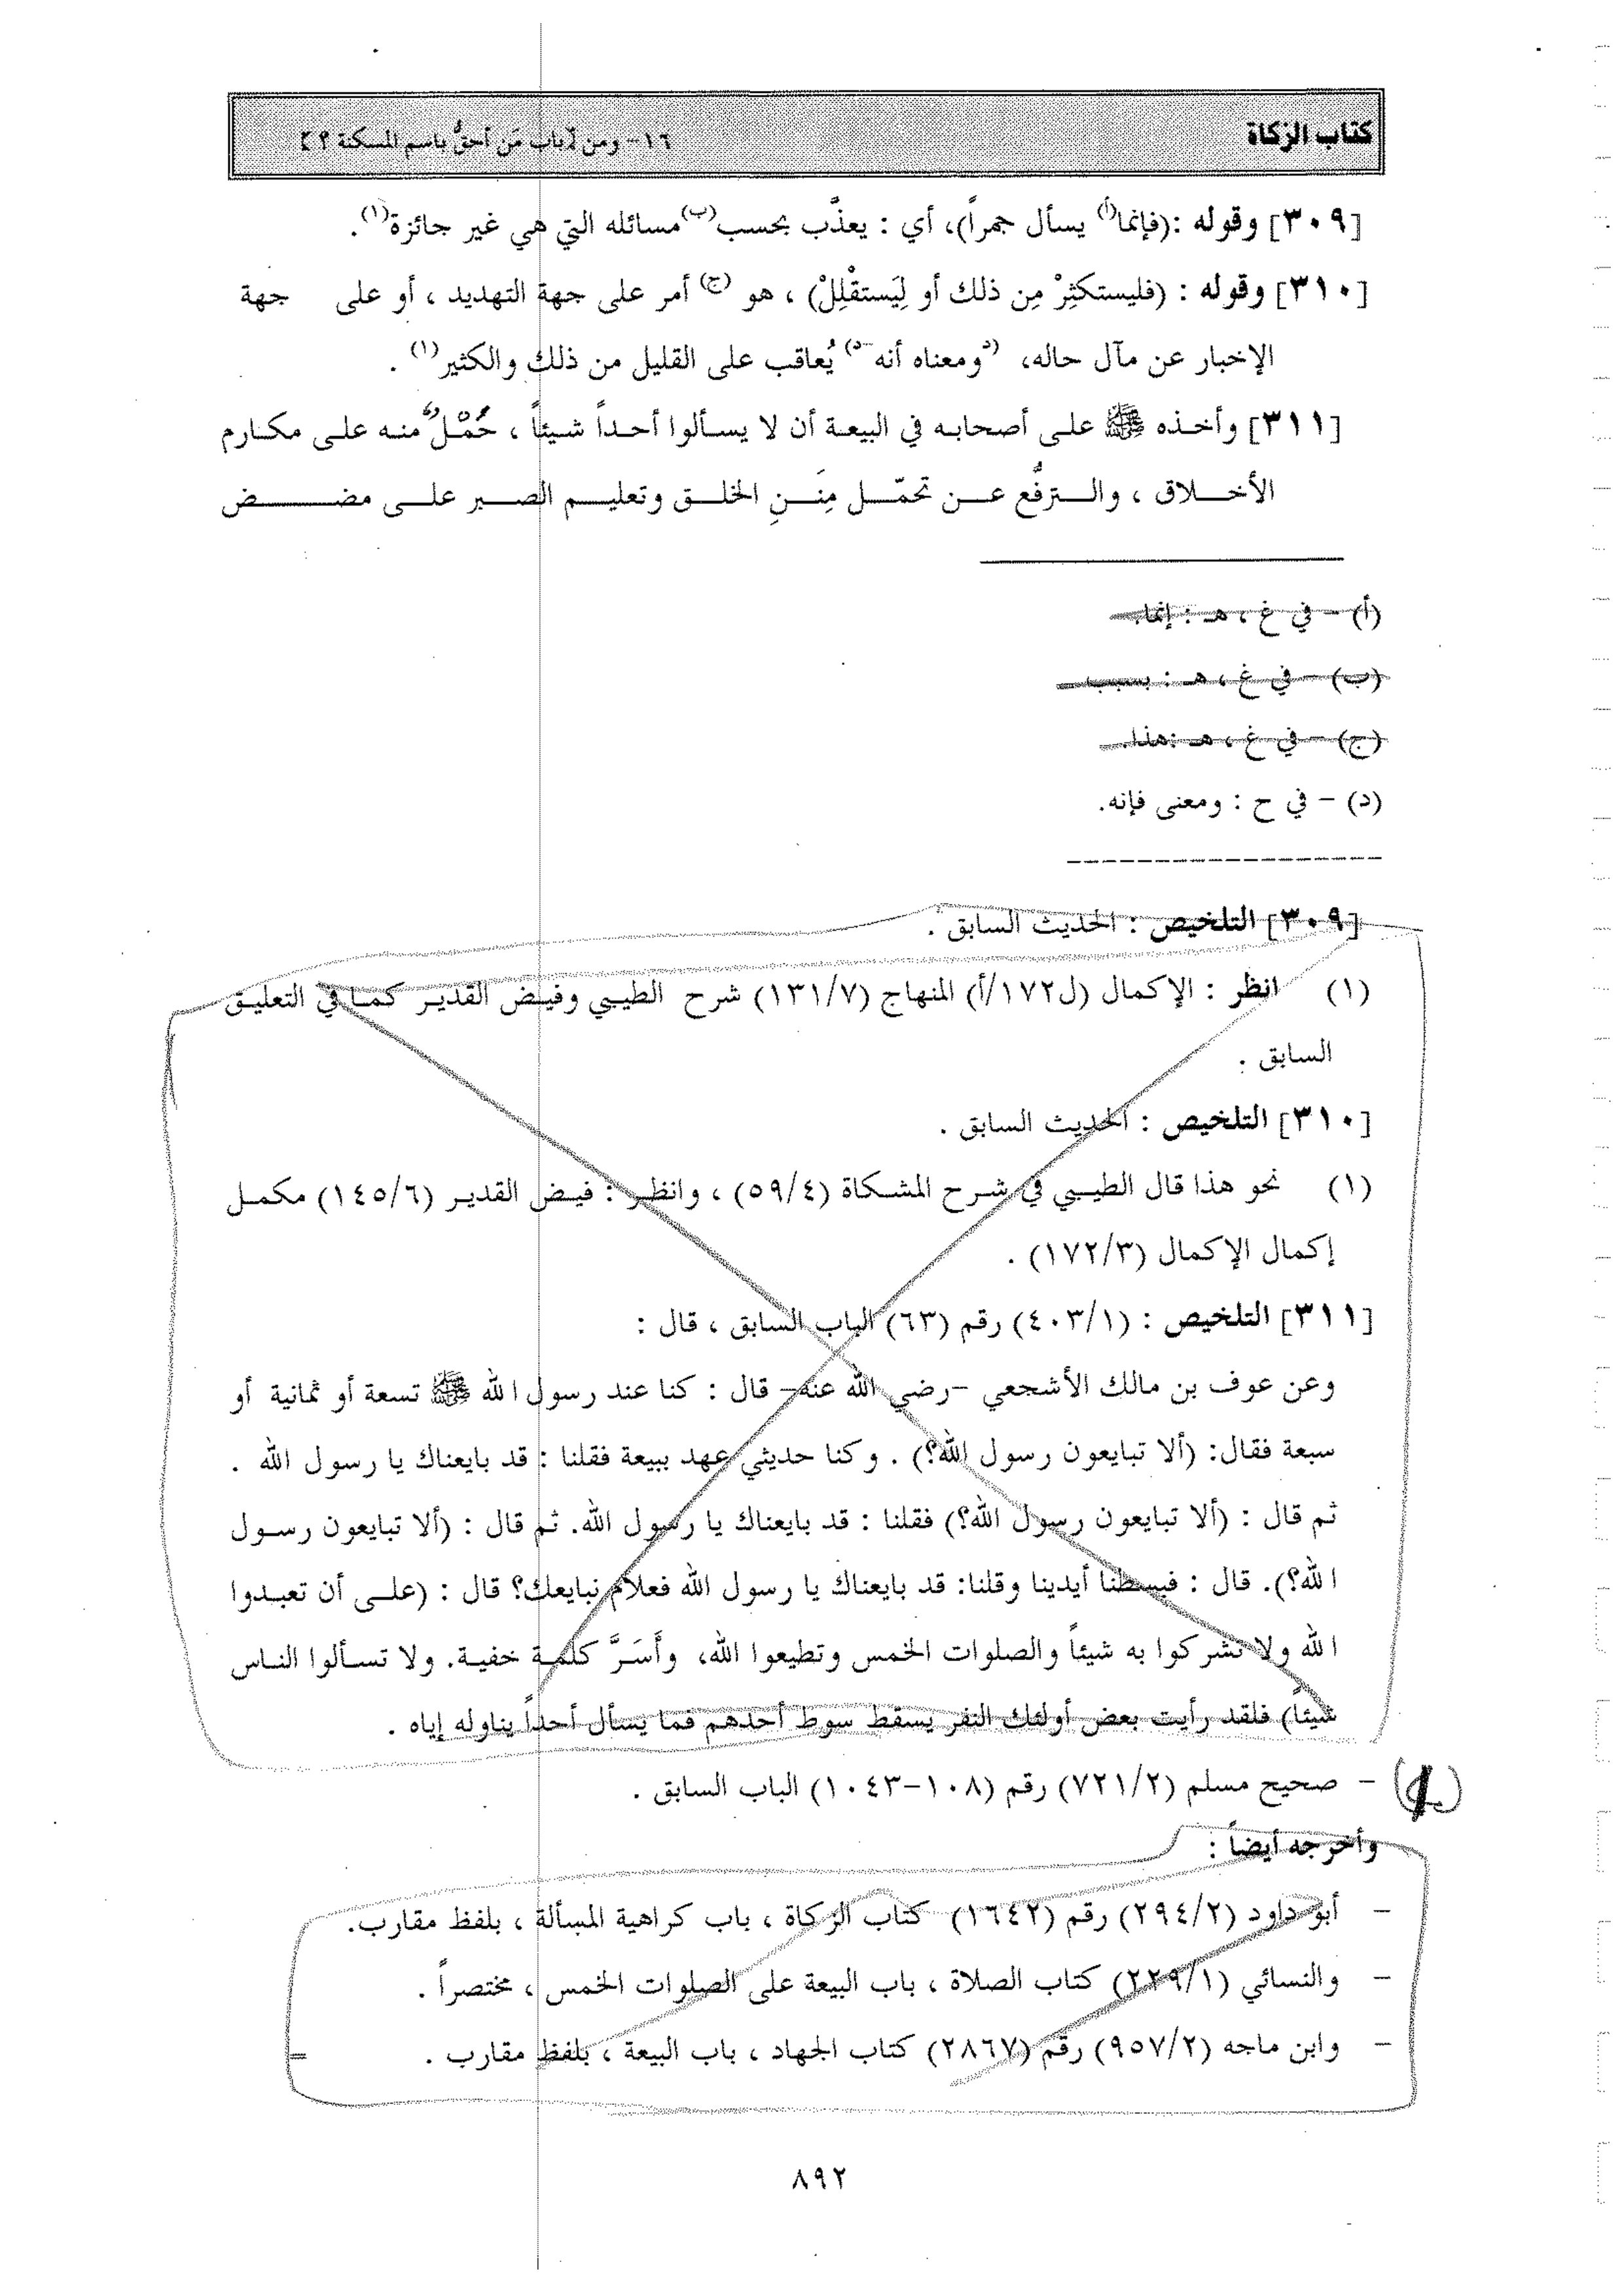 كتاب الزكاة
١٦- ومن [باب مَن أحقُّ باسم المسكنة ؟]
[٣٠٩] وقوله :(فإنما(أ) يسأل جمراً)، أي : يعذَّب بحسب(ب)مسائله التي هي غير جائزة(١).
[٣١٠] وقوله : (فليستكثِرْ مِن ذلك أو لِيَستقْلِلْ) ، هو (ج) أمر على جهة التهديد ، أو على جهة
الإخبار عن مآل حاله، (د ومعناه أنه -د) يُعاقب على القليل من ذلك والكثير(١) .
[٣١١] وأخذه ﷺ على أصحابه في البيعة أن لا يسألوا أحداً شيئاً ، حُمْلٌ منه على مكارم
الأخلاق ، والترفُّع عن تحمّل مِنَنِ الخلق وتعليم الصبر على مضض
(أ) - في غ ، هـ : إنما.
(ب) - في غ ، هـ : بسبب.
(ج) - في غ ، هـ :هذا.
(د) - في ح : ومعنى فإنه.
[٣٠٩] التلخيص : الحديث السابق .
(١) انظر : الإكمال (ل١٧٢/أ) المنهاج (١٣١/٧) شرح الطيبي وفيض القدير كما في التعليق
السابق .
[٣١٠] التلخيص : الحديث السابق .
(١) نحو هذا قال الطيبي في شرح المشكاة (٥٩/٤) ، وانظر : فيض القدير (١٤٥/٦) مكمل
إكمال الإكمال (١٧٢/٣) .
[٣١١] التلخيص : (٤٠٣/١) رقم (٦٣) الباب السابق ، قال :
وعن عوف بن مالك الأشجعي -رضي الله عنه- قال : كنا عند رسول الله ﷺ تسعة أو ثمانية أو
سبعة فقال: (ألا تبايعون رسول الله؟) . وكنا حديثي عهد ببيعة فقلنا : قد بايعناك يا رسول الله .
ثم قال : (ألا تبايعون رسول الله؟) فقلنا : قد بايعناك يا رسول الله. ثم قال : (ألا تبايعون رسول
الله؟). قال : فبسطنا أيدينا وقلنا: قد بايعناك يا رسول الله فعلام نبايعك؟ قال : (على أن تعبدوا
الله ولا تشركوا به شيئاً والصلوات الخمس وتطيعوا الله، وأَسَرَّ كلمة خفية. ولا تسألوا الناس
شيئاً) فلقد رأيت بعض أولئك النفر يسقط سوط أحدهم فما يسأل أحداً يناوله إياه .
- صحيح مسلم (٧٢١/٢) رقم (١٠٨-١٠٤٣) الباب السابق .
وأخرجه أيضاً :
- أبو داود (٢٩٤/٢) رقم (١٦٤٢) كتاب الزكاة ، باب كراهية المسألة ، بلفظ مقارب.
- والنسائي (٢٢٩/١) كتاب الصلاة ، باب البيعة على الصلوات الخمس ، مختصراً .
- وابن ماجه (٩٥٧/٢) رقم (٢٨٦٧) كتاب الجهاد ، باب البيعة ، بلفظ مقارب . =
٨٩٢